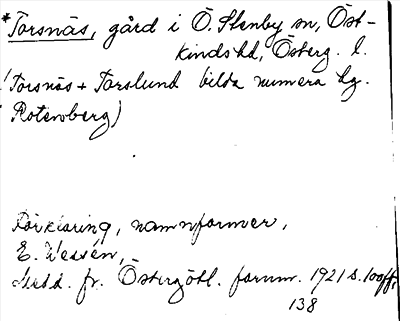 *Torsnäs, gård i Ö. Stenby sn, Öst-
kinds hd, Österg. l.
(Torsnäs + Torslund bilda numera hg.
Rotenberg)
Förklaring, namnformer,
E. Wessén,
Medd. fr. Östergötl. fornm. 1921 s. 100ff,
138